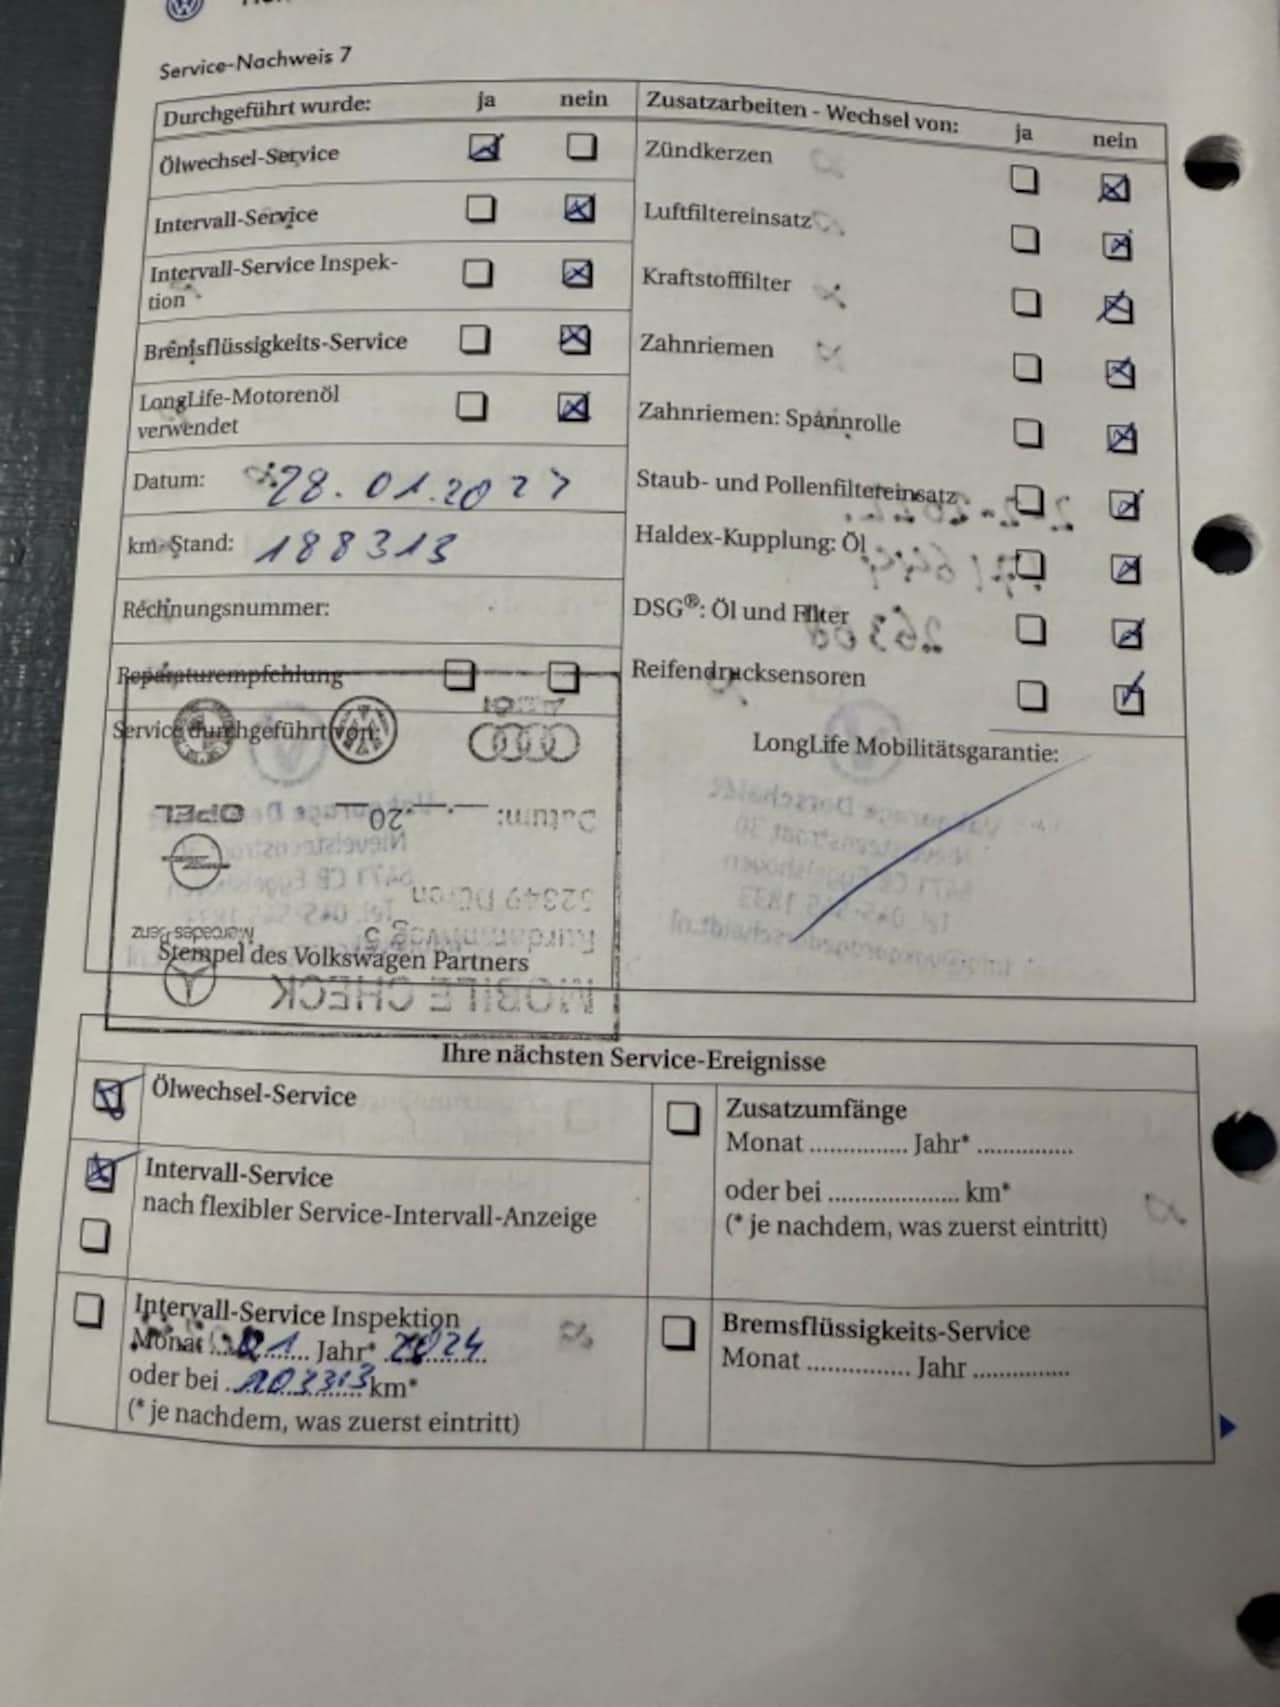 Service-Nachweis 7
Durchgeführt wurde: ja nein
Ölwechsel-Service
Intervall-Service
Intervall-Service Inspek-
tion
Bremsflüssigkeits-Service
LongLife-Motorenöl
verwendet
Datum: 28.01.20
km-Stand: 188313
Rechnungsnummer:
Reparaturempfehlung
Service durchgeführt von:
AUDI
OPEL
Datum: __.__.20__
52349 Düren
Mercedes-Benz
Stempel des Volkswagen Partners
MOBILE CHECK
Zusatzarbeiten - Wechsel von: ja nein
Zündkerzen
Luftfiltereinsatz
Kraftstofffilter
Zahnriemen
Zahnriemen: Spannrolle
Staub- und Pollenfiltereinsatz
Haldex-Kupplung: Öl
DSG®: Öl und Filter
Reifendrucksensoren
LongLife Mobilitätsgarantie:
Ihre nächsten Service-Ereignisse
Ölwechsel-Service
Intervall-Service
nach flexibler Service-Intervall-Anzeige
Intervall-Service Inspektion
Monat 01 Jahr* 2024
oder bei km*
(* je nachdem, was zuerst eintritt)
Zusatzumfänge
Monat ............... Jahr* ...............
oder bei .................... km*
(* je nachdem, was zuerst eintritt)
Bremsflüssigkeits-Service
Monat ................ Jahr ...............